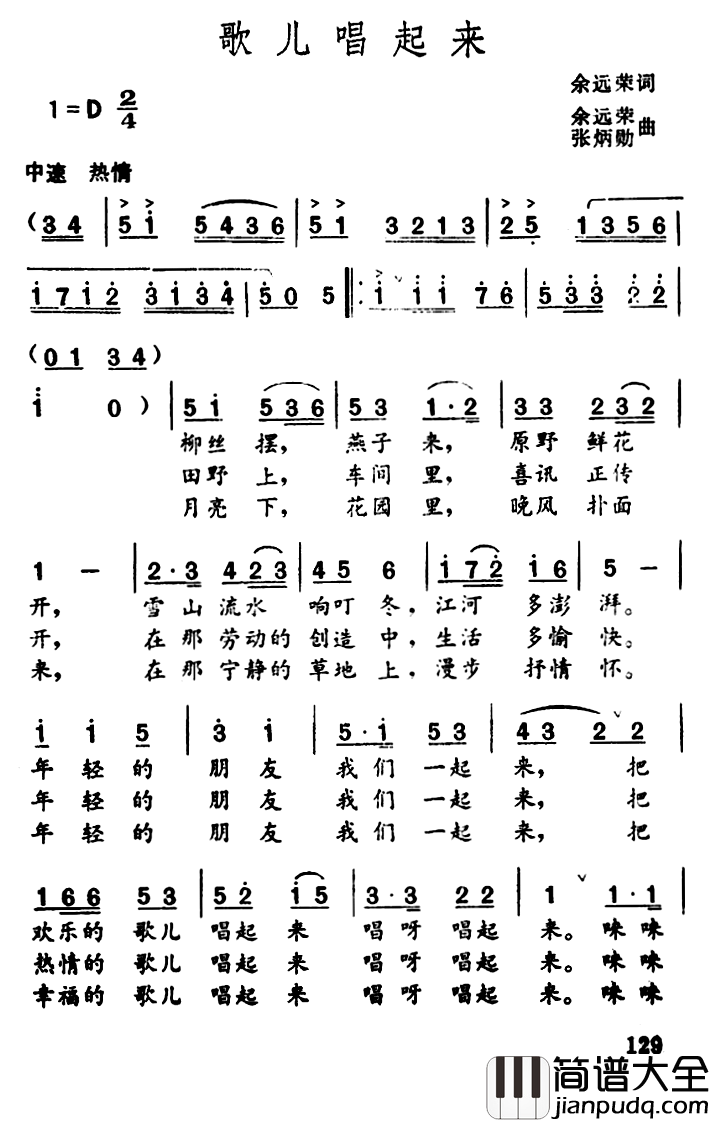 歌儿唱起来
余远荣词
1=D 2/4
余远荣
张炳勋 曲
中速 热情
(3 4 | 5 i 5 4 3 6 | 5 1 3 2 1 3 | 2 5 1 3 5 6 |
i 7 i 2 3 i 3 4 | 5 0 5 ‖: i i i 7 6 | 5 3 3 2 2 |
(0 1 3 4)
i 0) | 5 i 5 3 6 | 5 3 1·2 | 3 3 2 3 2 |
柳丝摆, 燕子来, 原野鲜花
田野上, 车间里, 喜讯正传
月亮下, 花园里, 晚风扑面
1 - | 2·3 4 2 3 | 4 5 6 | i 7 2 i 6 | 5 - |
开, 雪山流水 响叮冬, 江河多澎湃。
开, 在那劳动的创造中, 生活多愉快。
来, 在那宁静的草地上, 漫步抒情怀。
i i 5 | 3 i | 5·i 5 3 | 4 3 2 2 |
年轻的朋友我们一起来, 把
年轻的朋友我们一起来, 把
年轻的朋友我们一起来, 把
1 6 6 5 3 | 5 2 i 5 | 3·3 2 2 | 1 1·1 |
欢乐的歌儿唱起来唱呀唱起来。咪咪
热情的歌儿唱起来唱呀唱起来。咪咪
幸福的歌儿唱起来唱呀唱起来。咪咪
129
简谱大全
jianpudq.com